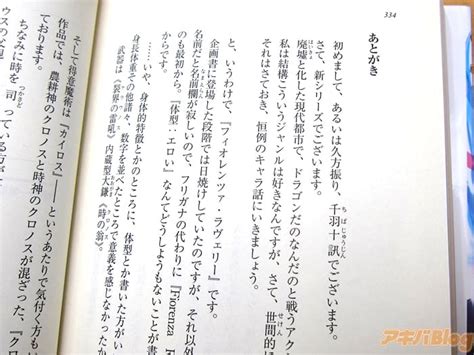 334
あとがき
初めまして、あるいは久方振り、千羽十訊でございます。
さて、新シリーズでございます。
廃墟と化した現代都市で、ドラゴンだのなんだのと戦うアク
私は結構こういうジャンルは好きなんですが、さて、世間的に
それはさておき、恒例のキャラ話にいきましょう。
と、いうわけで、『フィオレンツァ・ラヴェリー』です。
企画書に登場した段階では日焼けしていたのですが、それ以外
名前だと名前欄が寂しいので、フリガナの代わりに『Fiorenza
のも最初から。『体型：エロい』なんてどうしようもないとこ
……いや、身体的特徴とかのところに、体型とか書いた方がい
身長体重その他諸々、数字を並べたところで意義を感じなかった
武器は『裂界の雷吼』。内蔵型大鎌《時の翁》。
そして得意魔術は『カイロス』――というあたりで気付く方も
作品では、農耕神のクロノスと時神のクロノスが混ざった、『ク
ております。
ちなみに時を司っている方が
アキバBlog